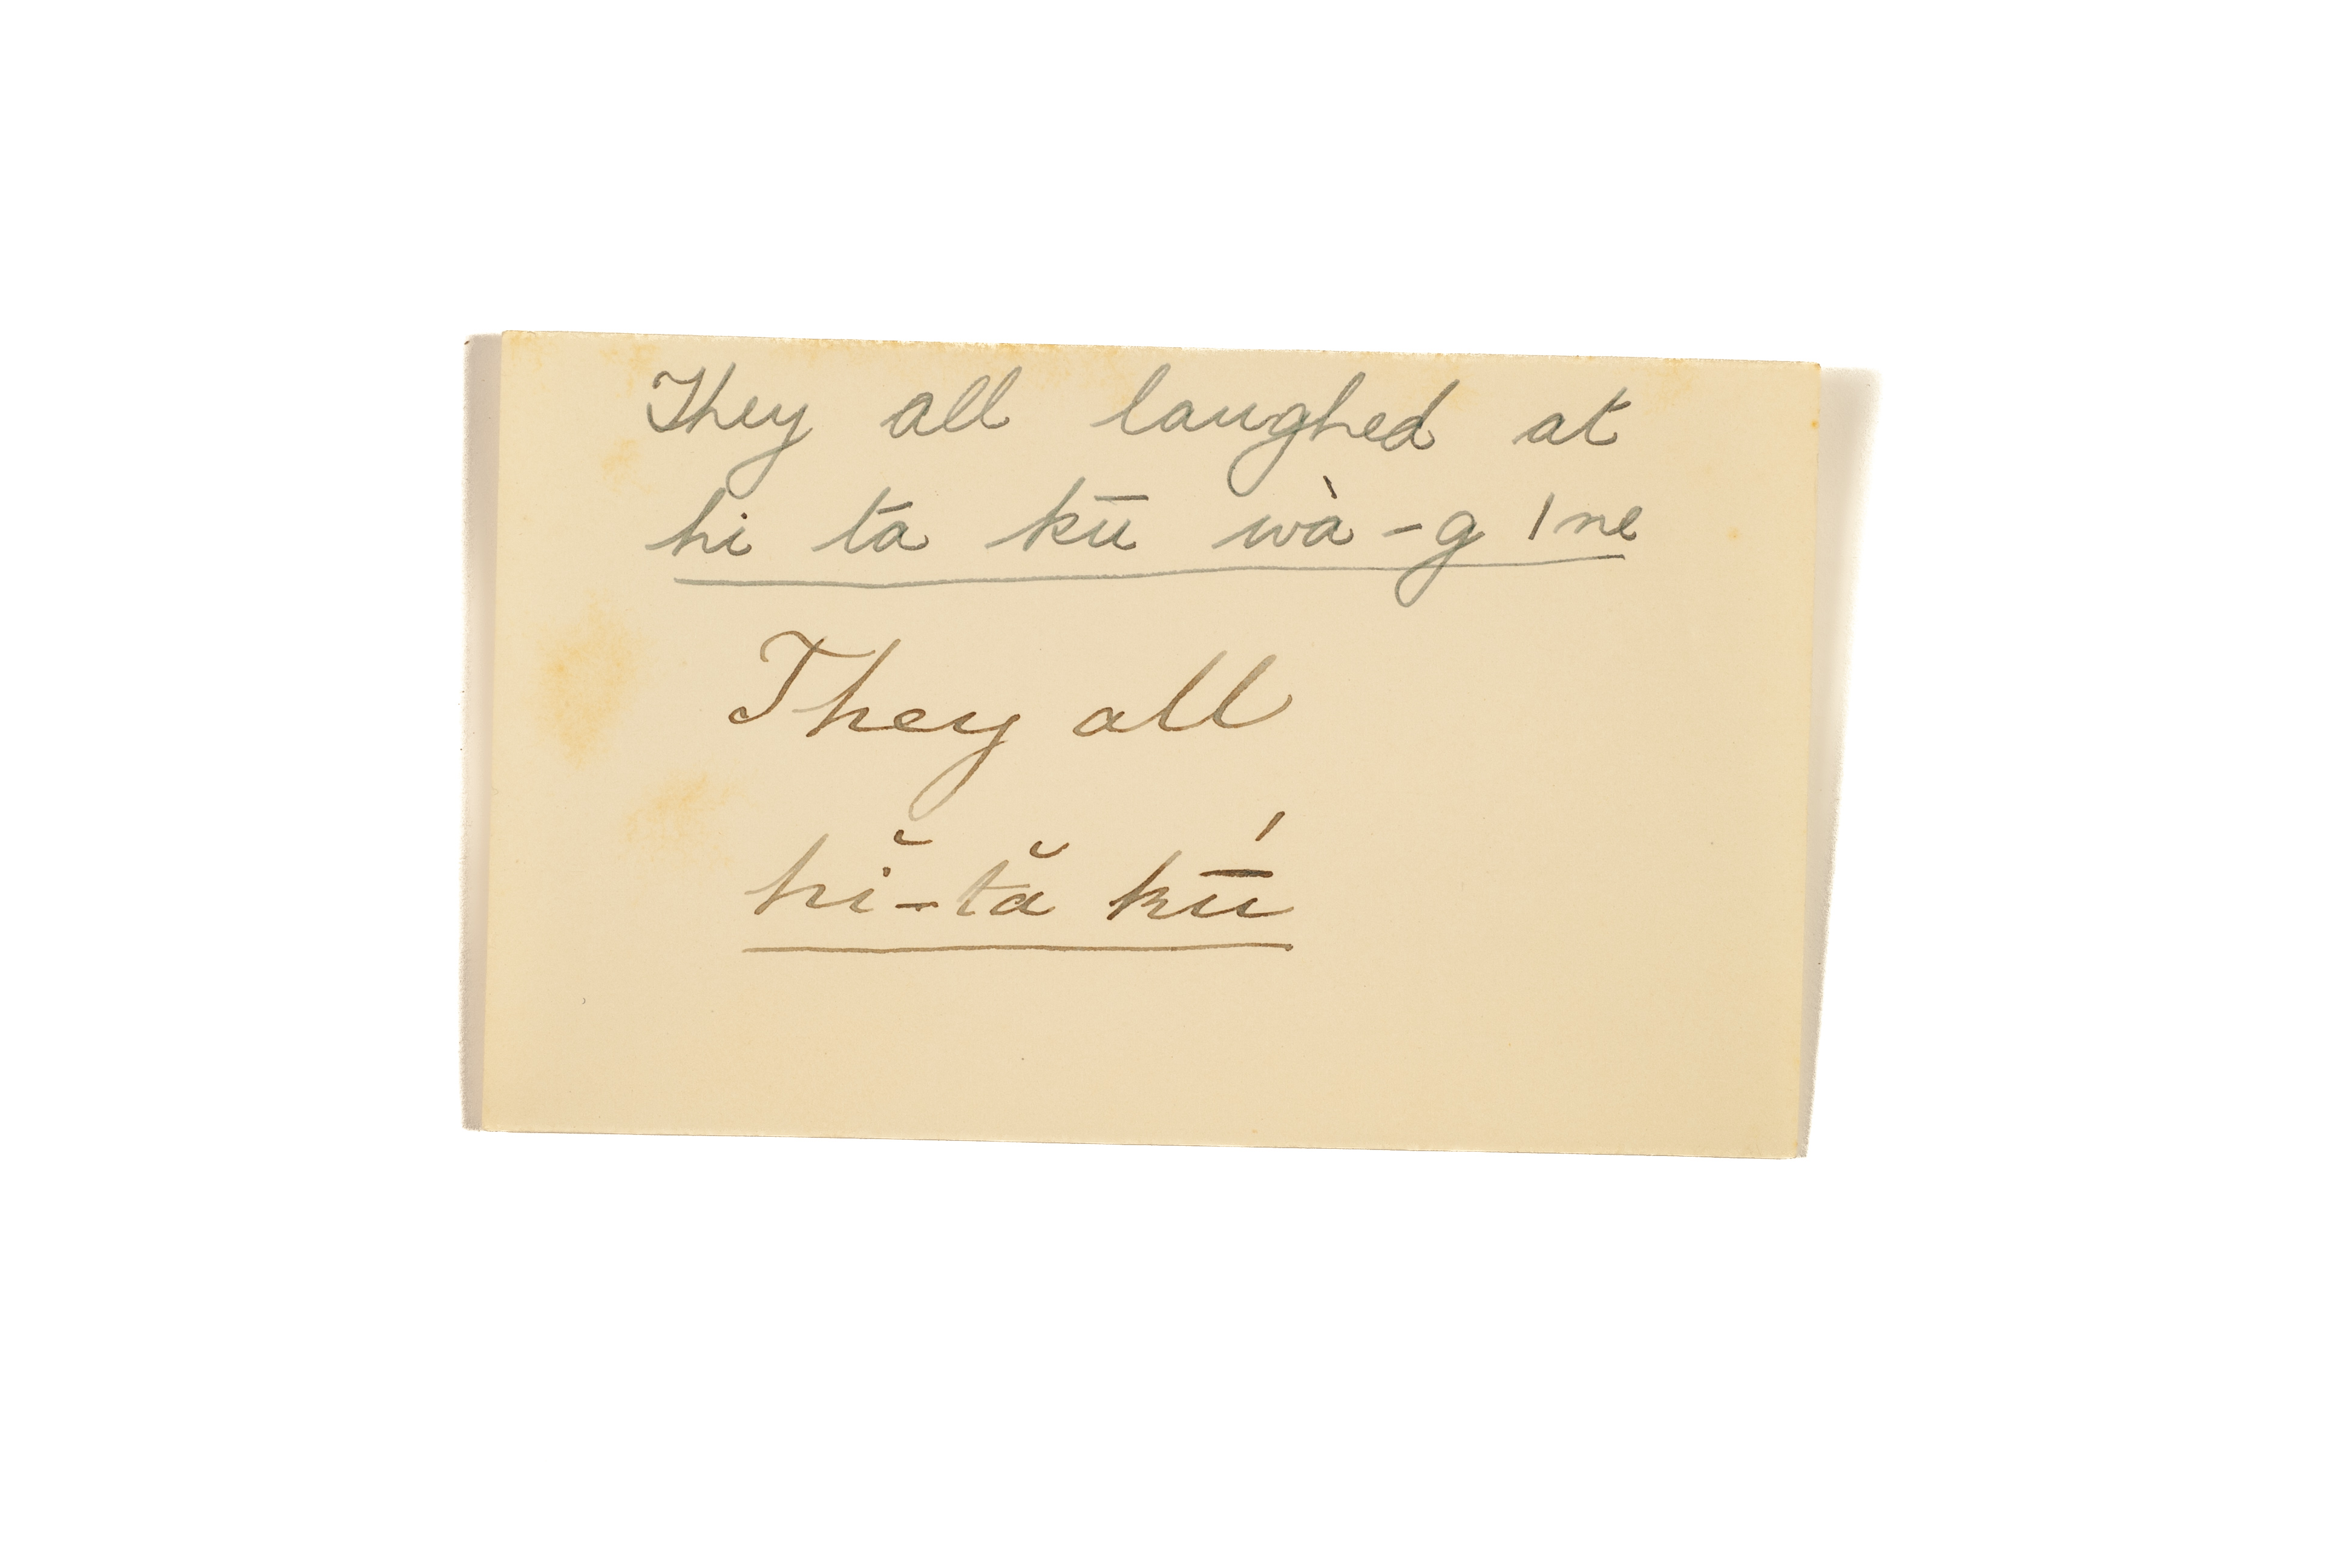 They all laughed at
hi ta kū wà - g I ne
They all
hĭ - tă kū́